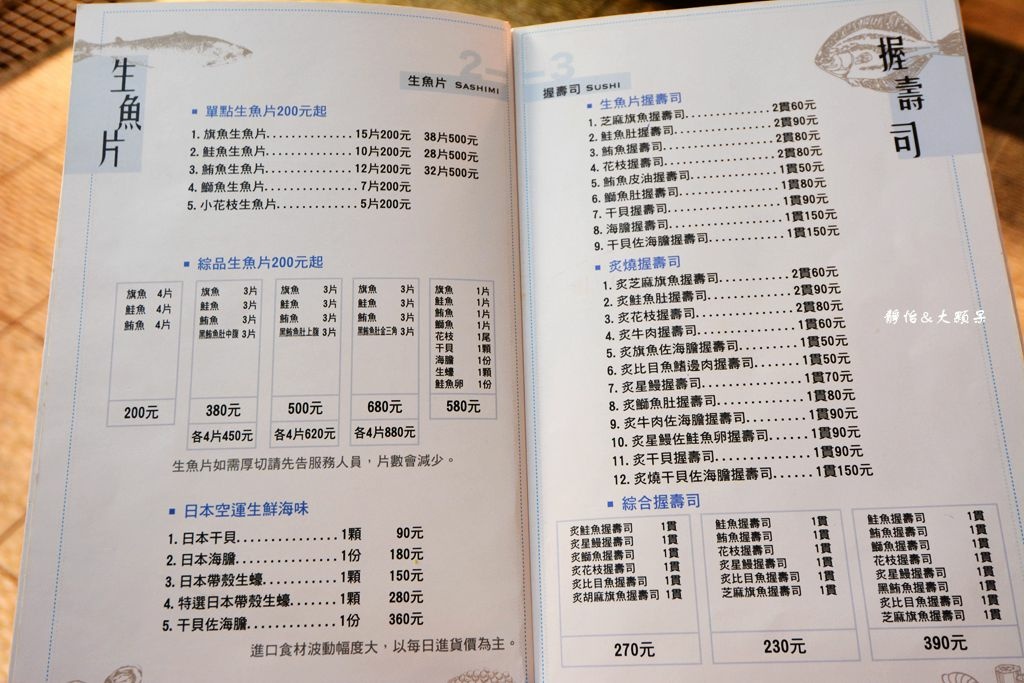 生魚片
2
生魚片 SASHIMI
■ 單點生魚片200元起
1. 旗魚生魚片............15片200元 38片500元
2. 鮭魚生魚片............10片200元 28片500元
3. 鮪魚生魚片............12片200元 32片500元
4. 鰤魚生魚片............7片200元
5. 小花枝生魚片............5片200元
■ 綜品生魚片200元起
旗魚 4片
鮭魚 4片
鮪魚 4片
200元
旗魚 3片
鮭魚 3片
鮪魚 3片
黑鮪魚肚中腹 3片
380元
各4片450元
旗魚 3片
鮭魚 3片
鮪魚 3片
黑鮪魚肚上腹 3片
500元
各4片620元
旗魚 3片
鮭魚 3片
鮪魚 3片
黑鮪魚肚全三角 3片
680元
各4片880元
旗魚 1片
鮭魚 1片
鮪魚 1片
鰤魚 1片
花枝 1尾
干貝 1顆
海膽 1份
生蠔 1顆
鮭魚卵 1份
580元
生魚片如需厚切請先告服務人員，片數會減少。
■ 日本空運生鮮海味
1. 日本干貝...............1顆 90元
2. 日本海膽...............1份 180元
3. 日本帶殼生蠔...........1顆 150元
4. 特選日本帶殼生蠔.......1顆 280元
5. 干貝佐海膽.............1份 360元
進口食材波動幅度大，以每日進貨價為主。
3
握壽司 SUSHI
握壽司
■ 生魚片握壽司
1. 芝麻旗魚握壽司............2貫60元
2. 鮭魚肚握壽司............2貫90元
3. 鮪魚握壽司............2貫80元
4. 花枝握壽司............2貫80元
5. 鮪魚皮油握壽司............1貫50元
6. 鰤魚肚握壽司............1貫80元
7. 干貝握壽司............1貫90元
8. 海膽握壽司............1貫150元
9. 干貝佐海膽握壽司............1貫150元
■ 炙燒握壽司
1. 炙芝麻旗魚握壽司............2貫60元
2. 炙鮭魚肚握壽司............2貫90元
3. 炙花枝握壽司............2貫80元
4. 炙牛肉握壽司............1貫60元
5. 炙旗魚佐海膽握壽司............1貫50元
6. 炙比目魚鰭邊肉握壽司............1貫50元
7. 炙星鰻握壽司............1貫70元
8. 炙鰤魚肚握壽司............1貫80元
9. 炙牛肉佐海膽握壽司............1貫90元
10. 炙星鰻佐鮭魚卵握壽司......1貫90元
11. 炙干貝握壽司............1貫90元
12. 炙燒干貝佐海膽握壽司......1貫150元
■ 綜合握壽司
炙鮭魚握壽司 1貫
炙星鰻握壽司 1貫
炙鰤魚握壽司 1貫
炙花枝握壽司 1貫
炙比目魚握壽司 1貫
炙胡麻旗魚握壽司 1貫
270元
鮭魚握壽司 1貫
鮪魚握壽司 1貫
花枝握壽司 1貫
炙星鰻握壽司 1貫
炙比目魚握壽司 1貫
芝麻旗魚握壽司 1貫
230元
鮭魚握壽司 1貫
鮪魚握壽司 1貫
鰤魚握壽司 1貫
花枝握壽司 1貫
炙星鰻握壽司 1貫
黑鮪魚握壽司 1貫
炙比目魚握壽司 1貫
芝麻旗魚握壽司 1貫
390元
靜怡&大顆呆